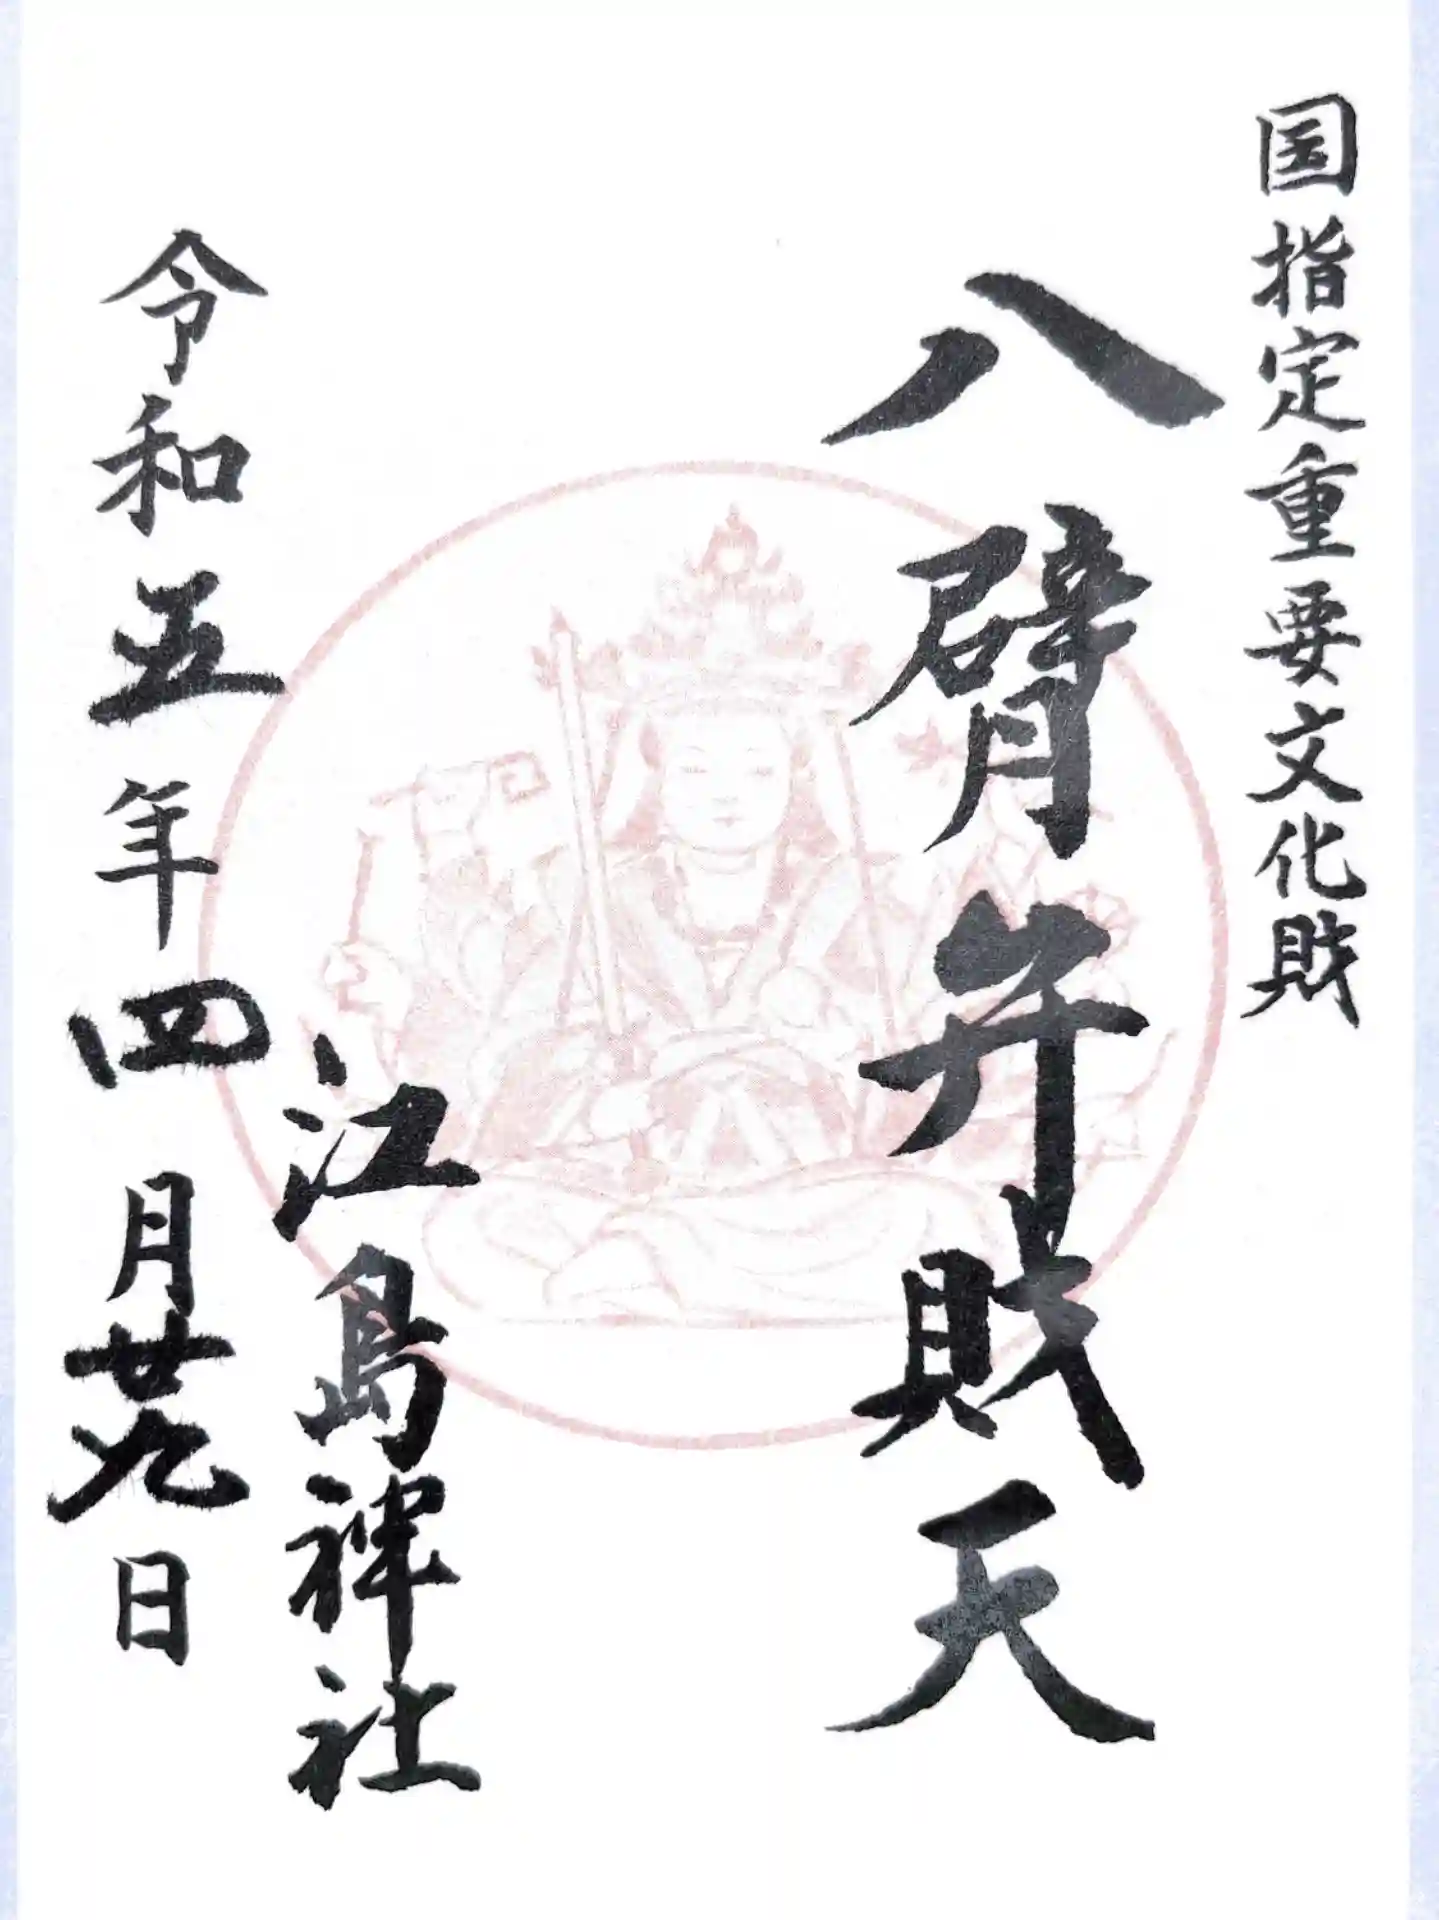 国指定重要文化財
八臂弁財天
江島神社
令和五年四月廿九日